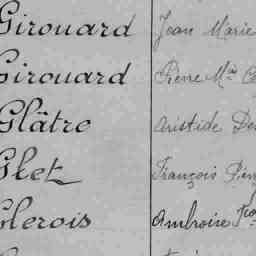 Girouard Jean Marie
Girouard Rene Mie
Glâtre Aristide
Glet François
Glerois Ambroise